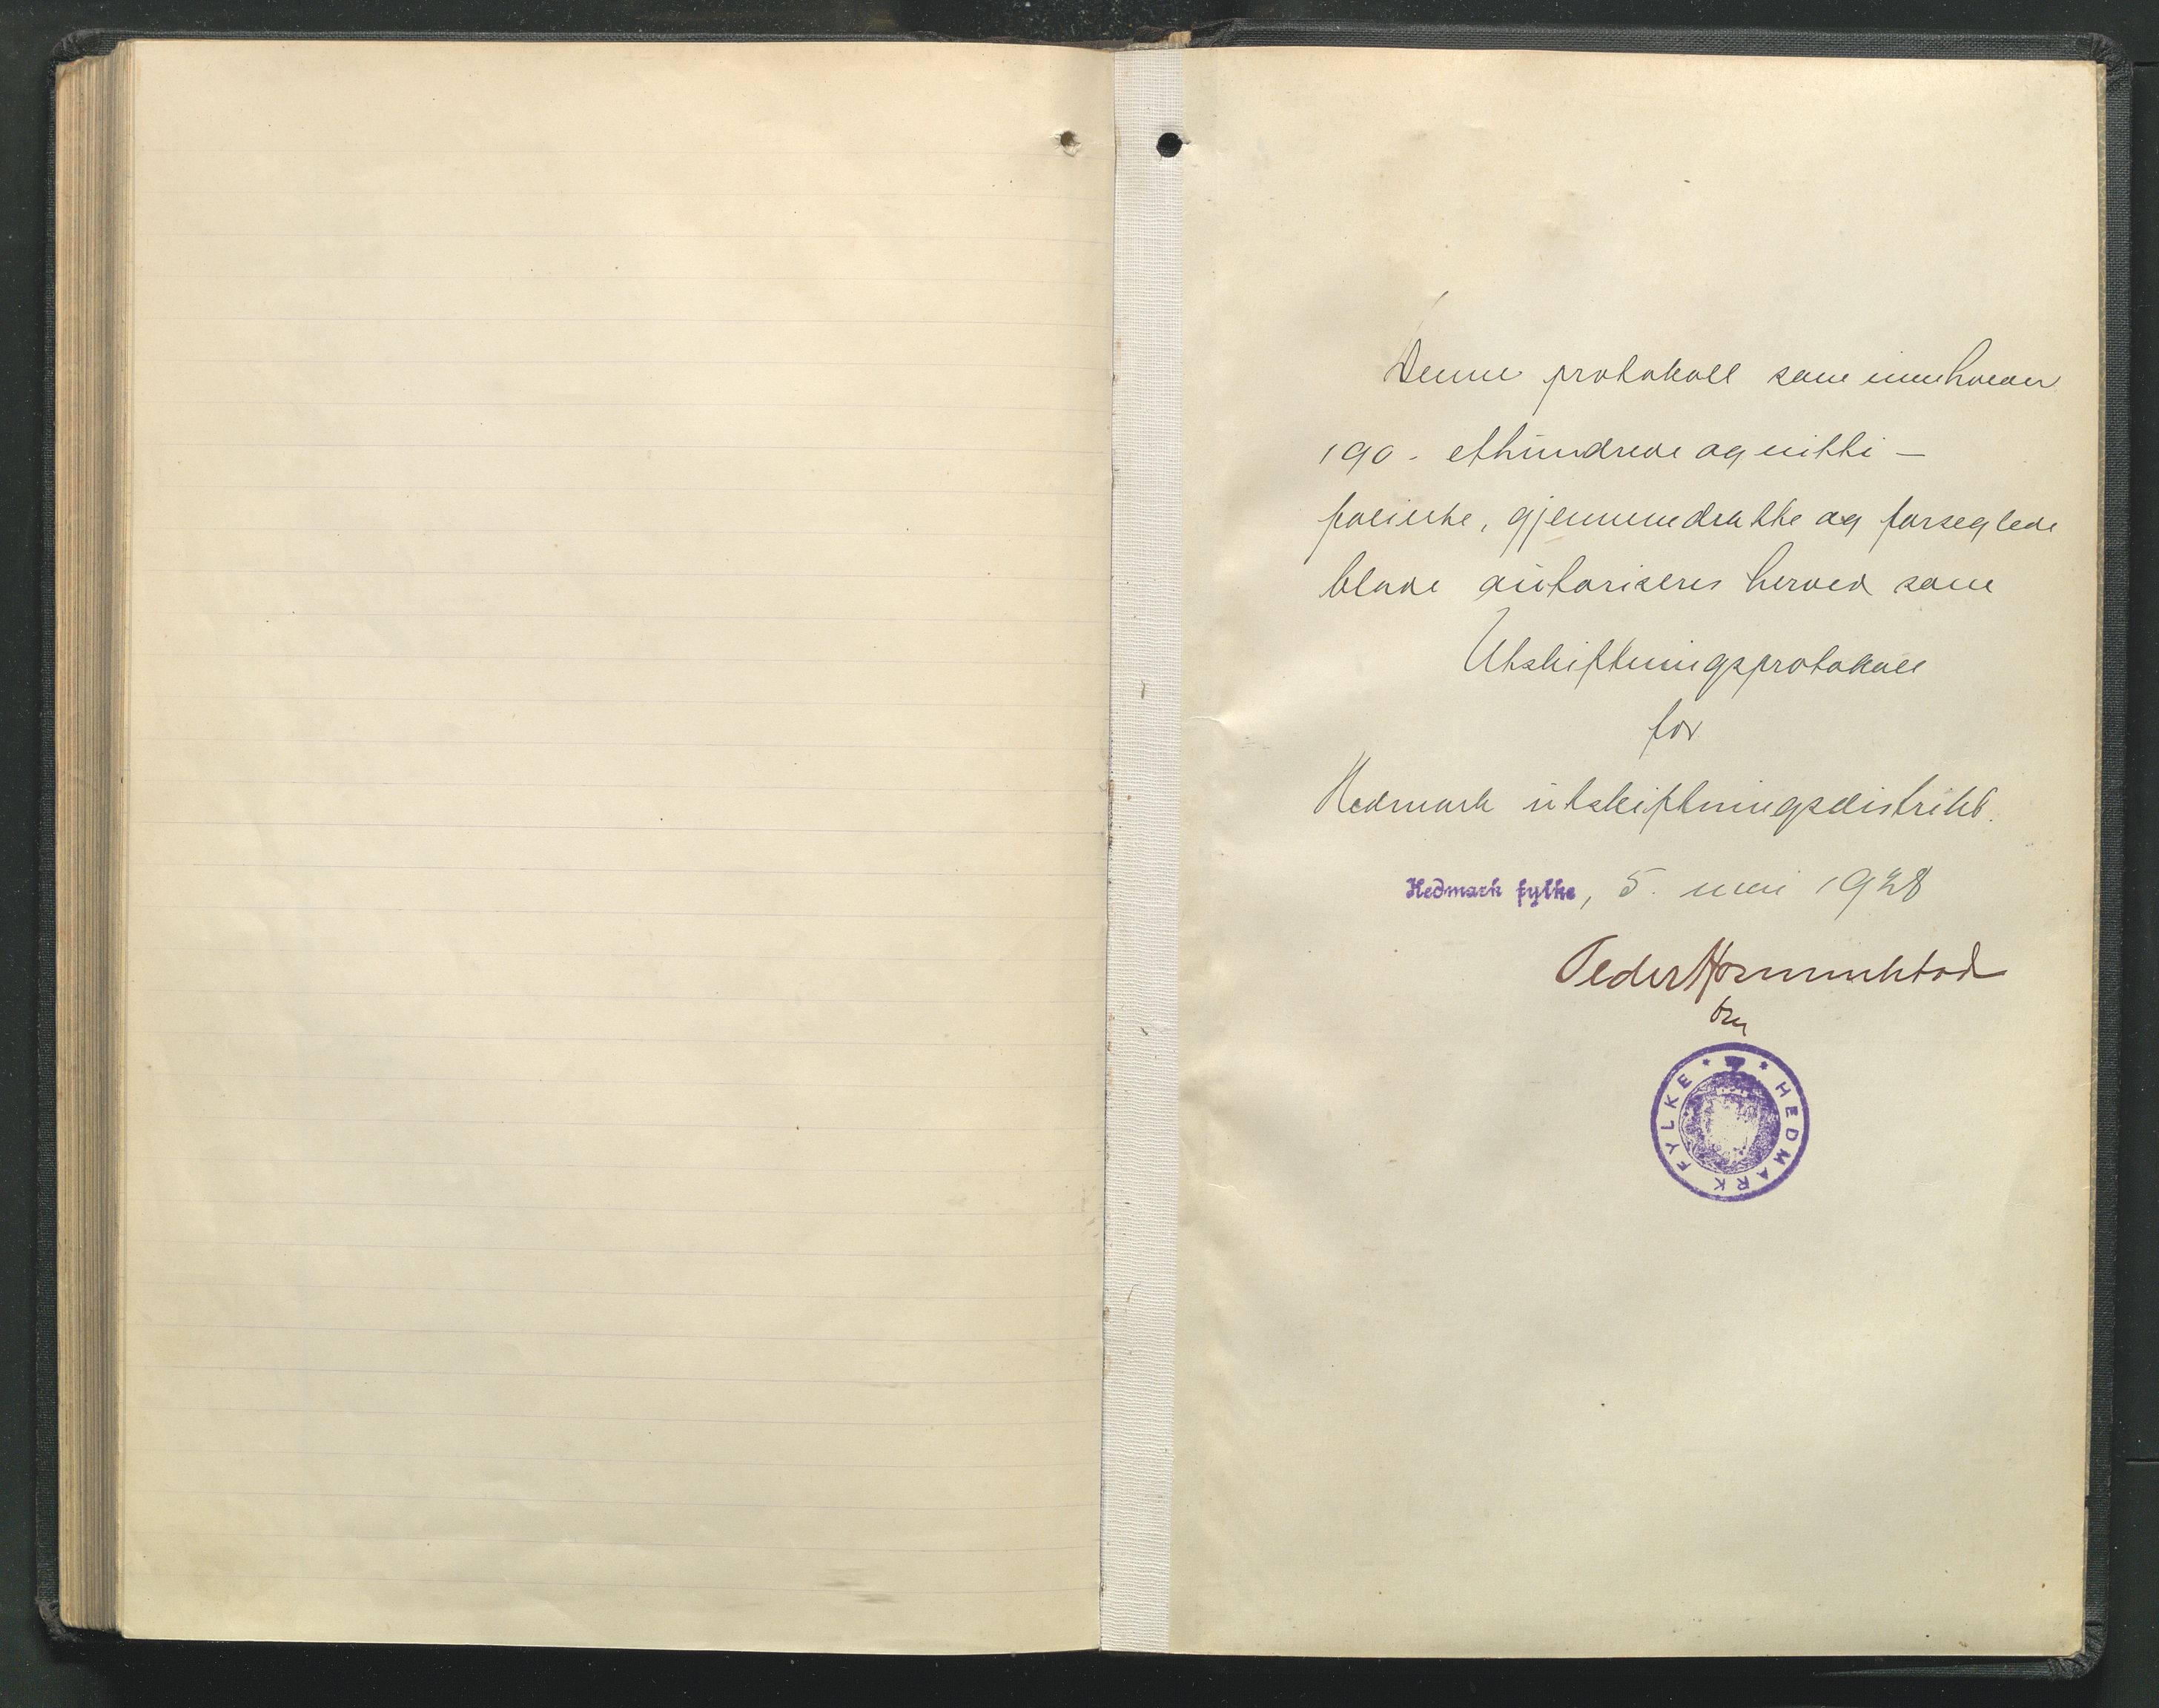 Denne protokoll som inneholder
190 - ethundrede og nitti -
folierte, gjennemdratte og forseglede
blade autoriseres herved som
Utskiftningsprotokoll
for
Hedmark utskiftningsdistrikt.
Hedmark fylke, 5. mai 1928
Peder
HEDMARK FYLKE